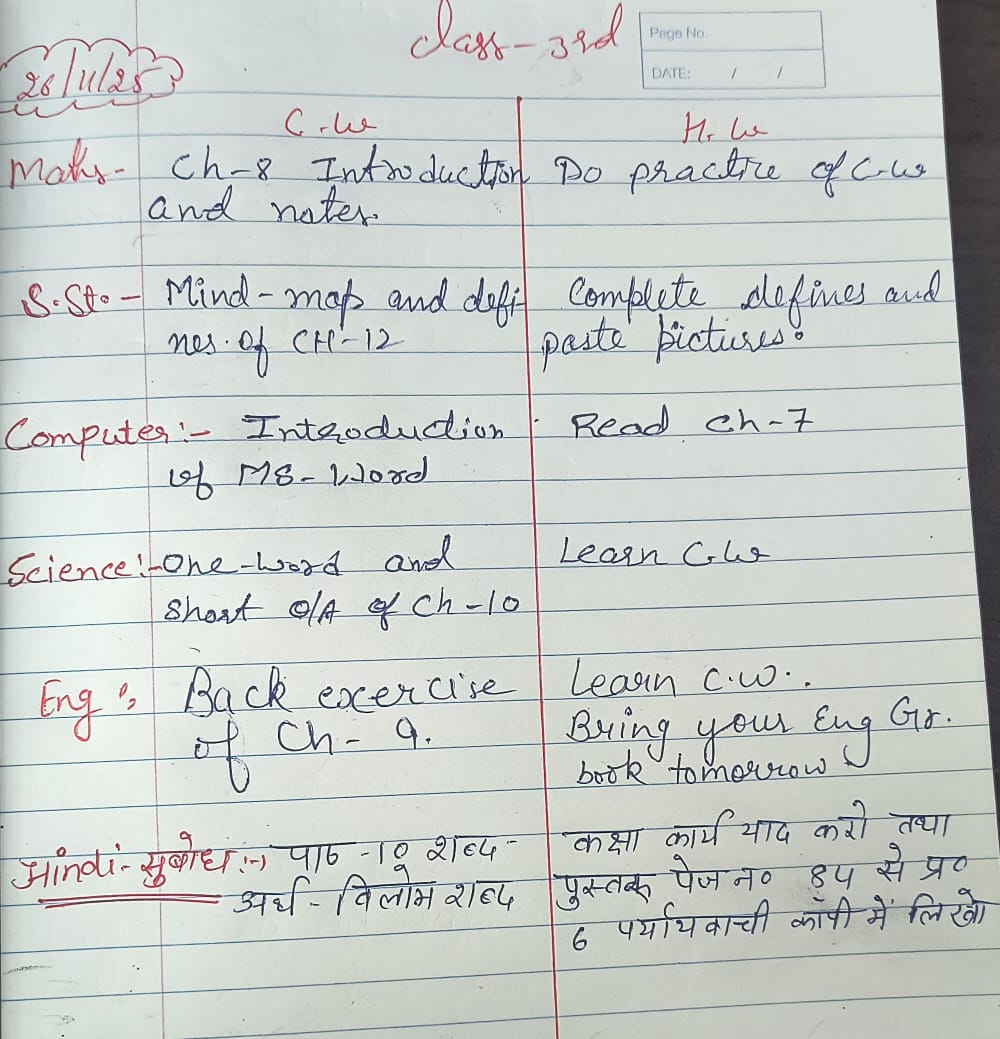 class-3rd
Page No.
DATE: / /
26/11/25
C.w
H.w
Maths- Ch-8 Introduction Do practice of C.w
and notes.
S.St.- Mind-map and defi Complete defines and
nes. of CH-12 paste pictures.
Computer:- Introduction Read ch-7
of MS-Word
Science:- One-word and Learn C.w
short Q/A of Ch-10
Eng:, Back excercise Learn c.w..
of Ch-9. Bring your Eng Gr.
book tomorrow
हिन्दी-सुबोध:-) पाठ-10 शब्द- कक्षा कार्य याद करो तथा
अर्थ-विलोम शब्द पुस्तक पेज न० 84 से प्र०
6 पर्यायवाची कॉपी में लिखो